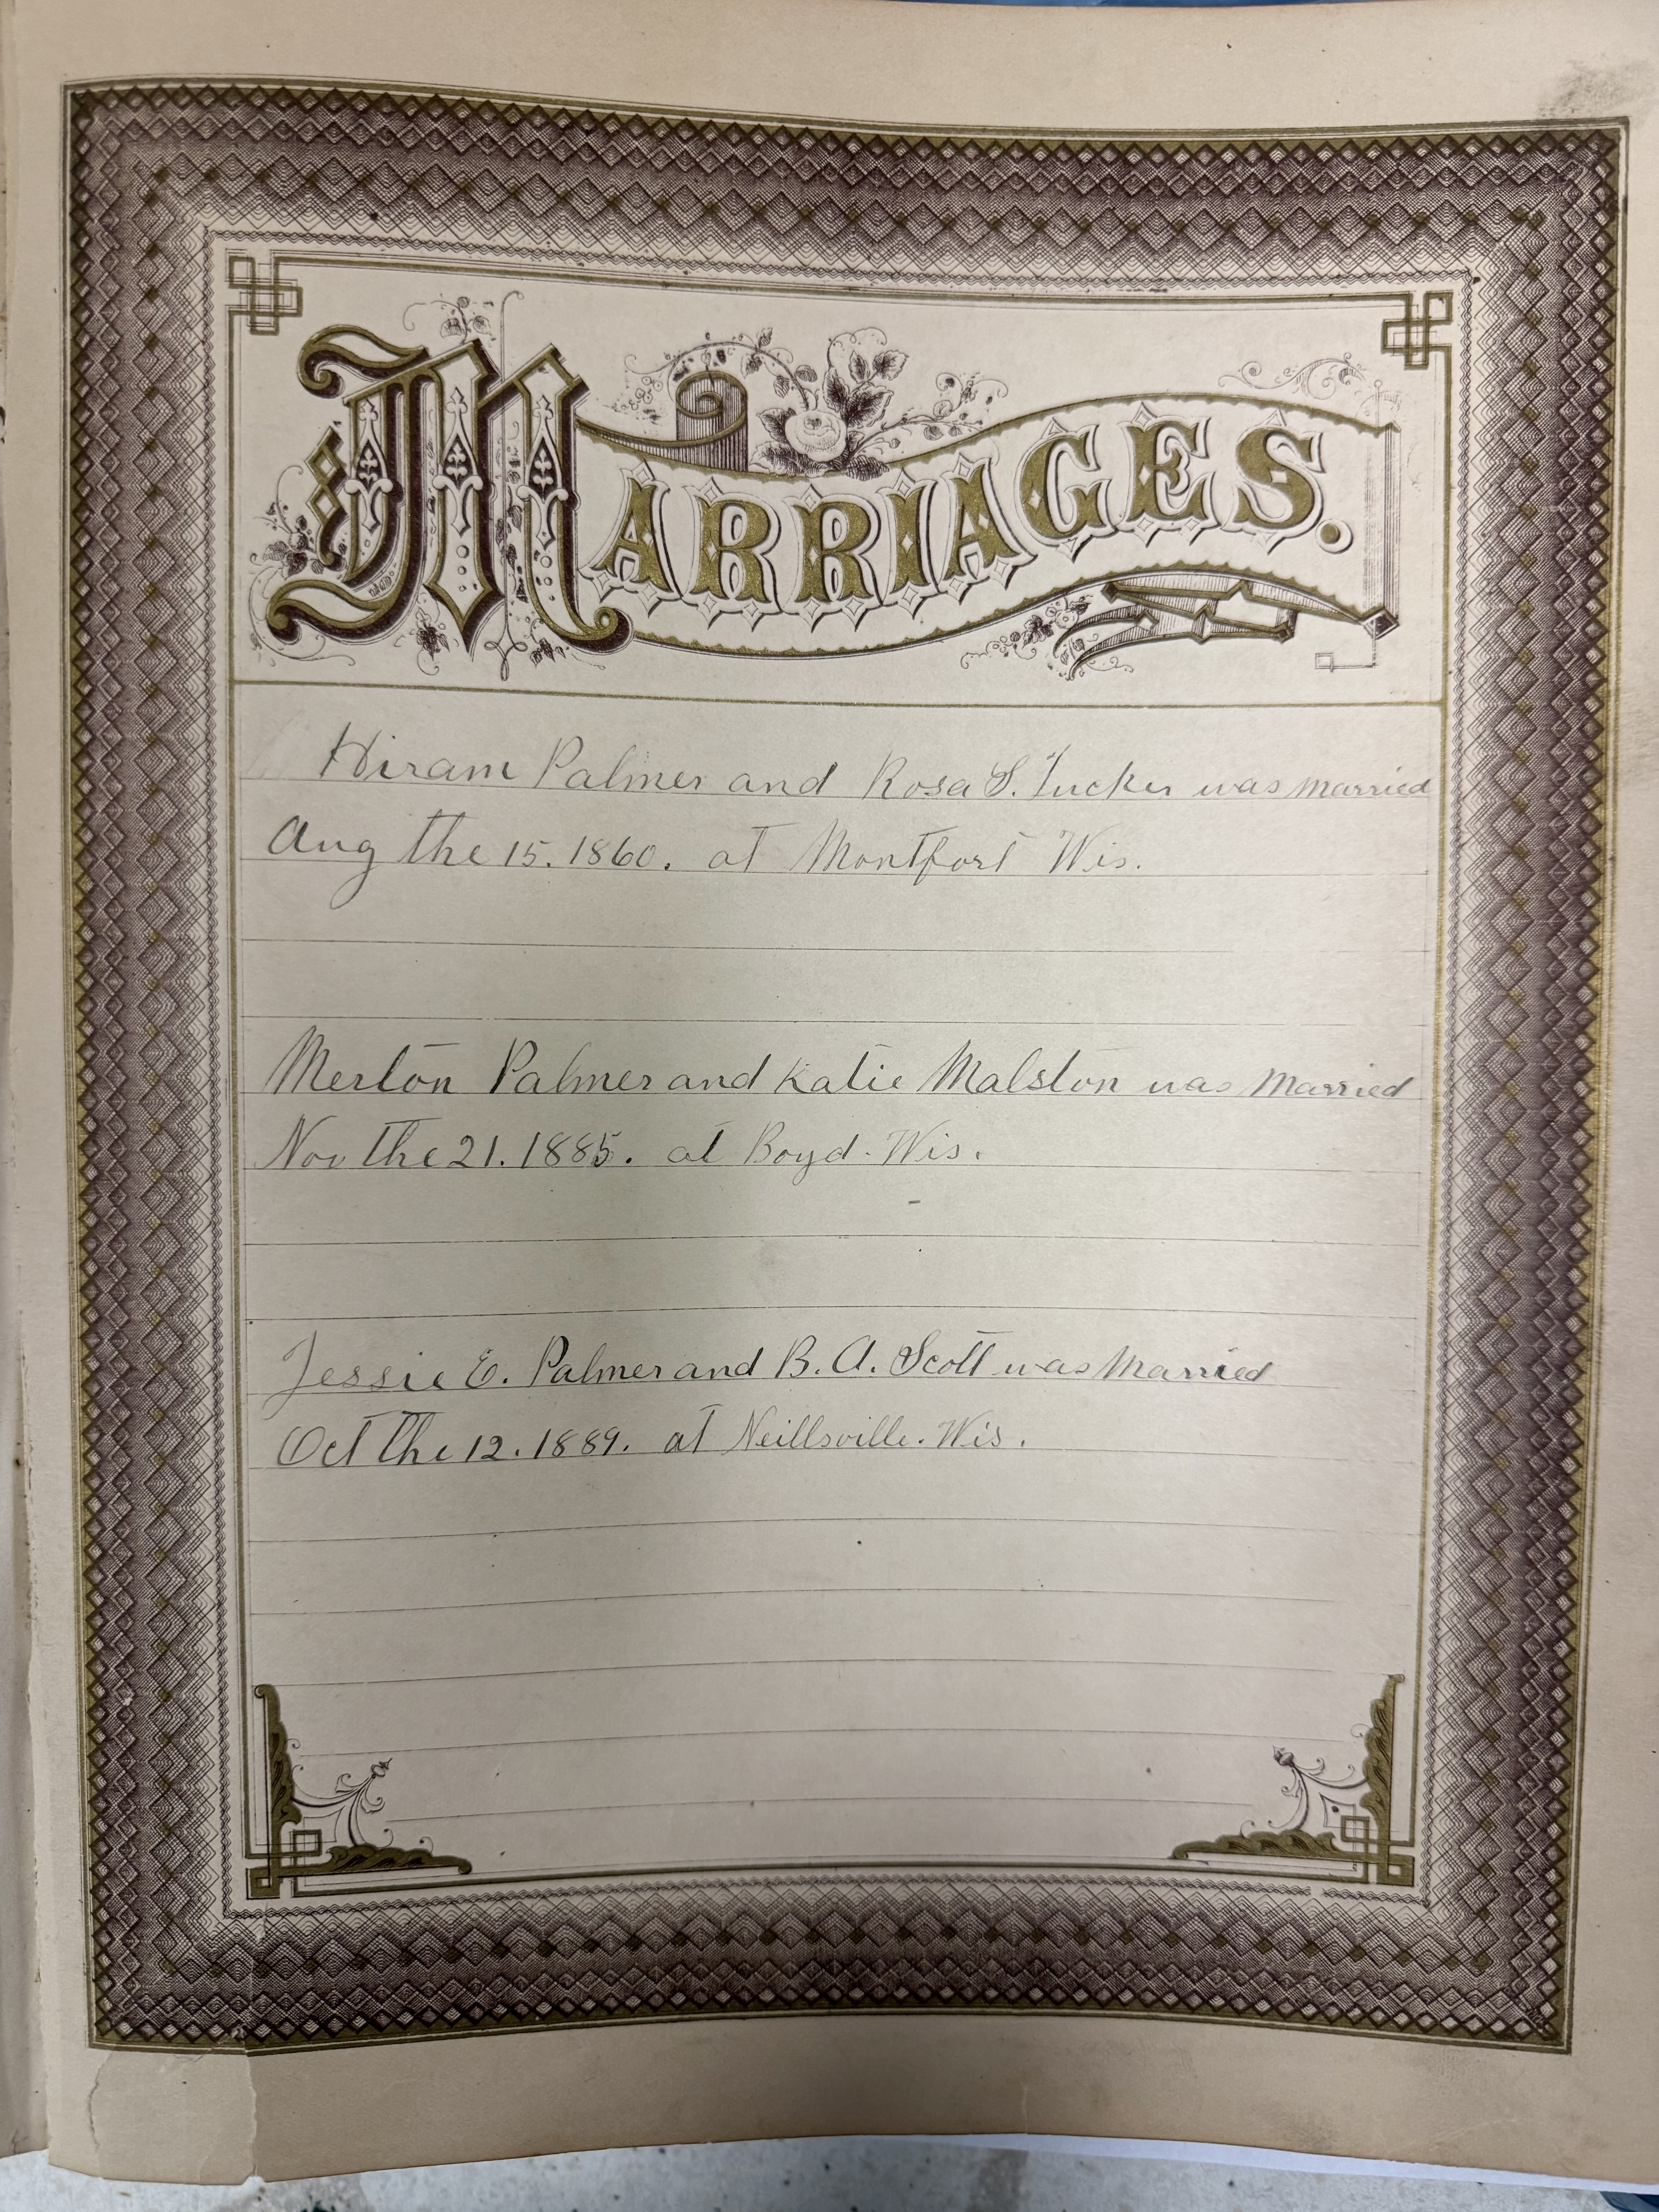 MARRIAGES.
Hiram Palmer and Rosa S. Tucker was married
Aug the 15. 1860. at Montfort Wis.
Merton Palmer and Katie Malston was Married
Nov the 21. 1885. at Boyd. Wis.
Jessie E. Palmer and B. A. Scott was Married
Oct the 12. 1889. at Neillsville. Wis.